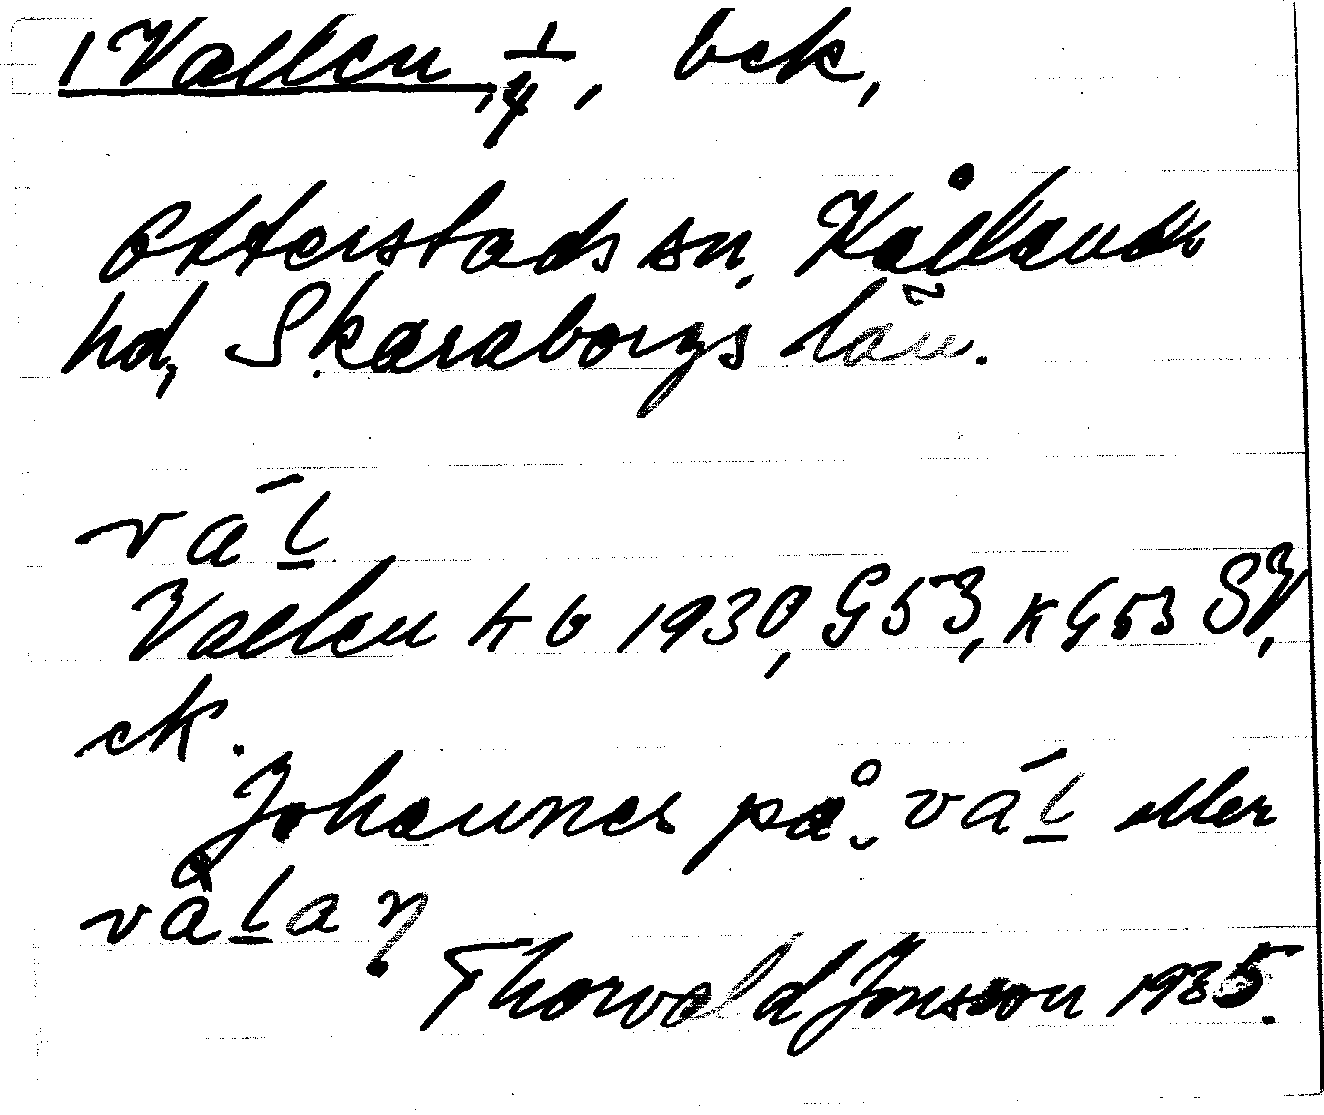 1 Vallen, 1/4, bck,
Otterstads sn, Kållands
hd, Skaraborgs län.
vál
Vallen Kb 1930, G53, KG53 SV,
ek.
Johannes på vál eller
vålaŋ
Thorvald Jonsson 1935.